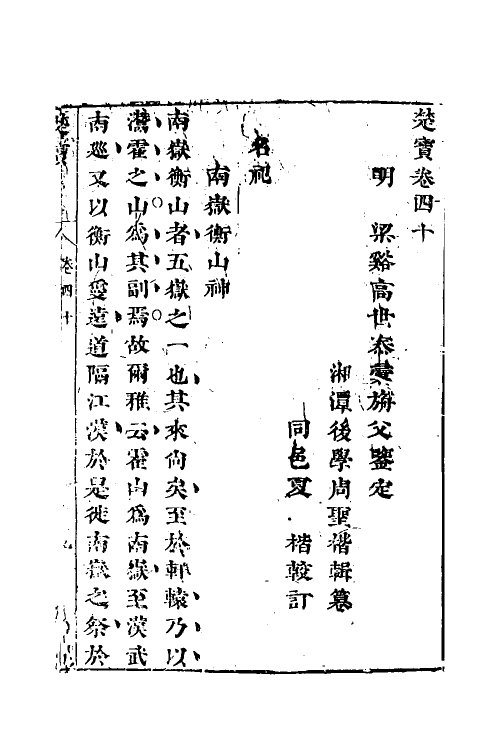 楚寶卷四十
明　梁谿高世泰彙旃父鑒定
湘潭後學周聖楷輯纂
同邑夏　楷較訂
名祀
南嶽衡山神
南嶽衡山者五嶽之一也其來尚矣至於軒轅乃以
灊霍之山爲其副焉故爾雅云霍山爲南嶽至漢武
南廵又以衡山夐遠道隔江漢於是徙南嶽之祭於
楚寶
卷四十